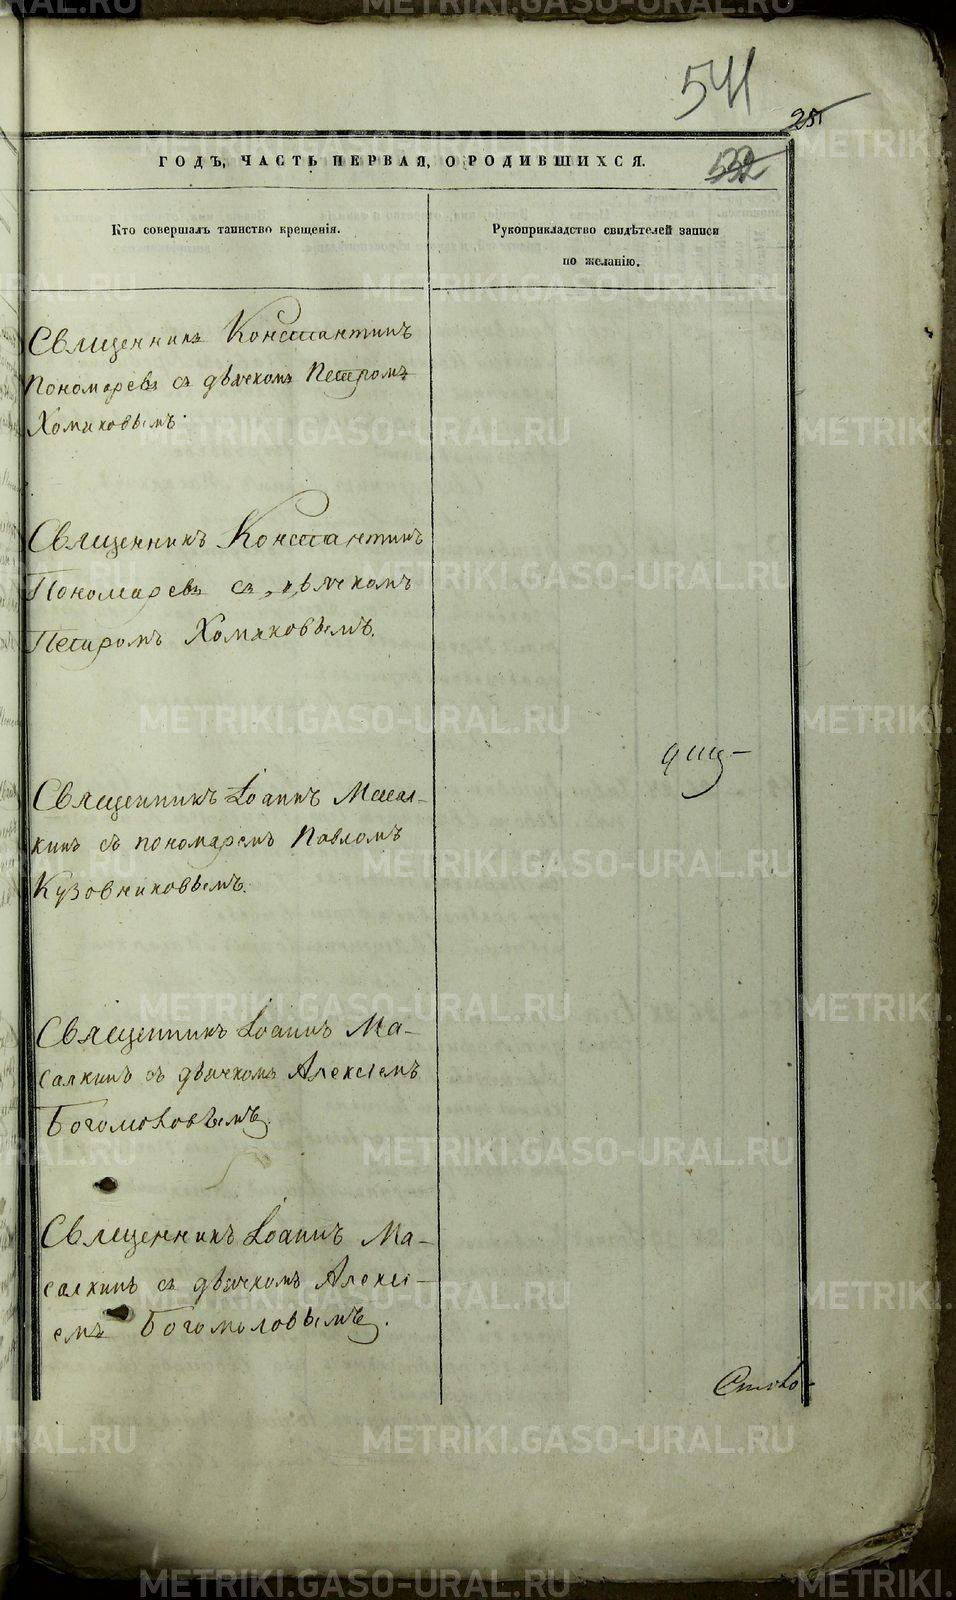 541
25
532
ГОДЪ, ЧАСТЬ ПЕРВАЯ, О РОДИВШИХСЯ.
Кто совершалъ таинство крещенія.
Рукоприкладство свидѣтелей записи
по желанію.
Священникъ Константинъ
Пономаревъ съ дьячкомъ Петромъ
Хомяковымъ.
Священникъ Константинъ
Пономаревъ съ дьячкомъ
Петромъ Хомяковымъ.
Священникъ Іоаннъ Масал-
кинъ съ пономаремъ Павломъ
Кузовниковымъ.
Священникъ Іоаннъ Ма-
салкинъ съ дьячкомъ Алексіемъ
Богомоловымъ.
Священникъ Іоаннъ Ма-
салкинъ съ дьячкомъ Алексі-
емъ Богомоловымъ.
METRIKI.GASO-URAL.RU